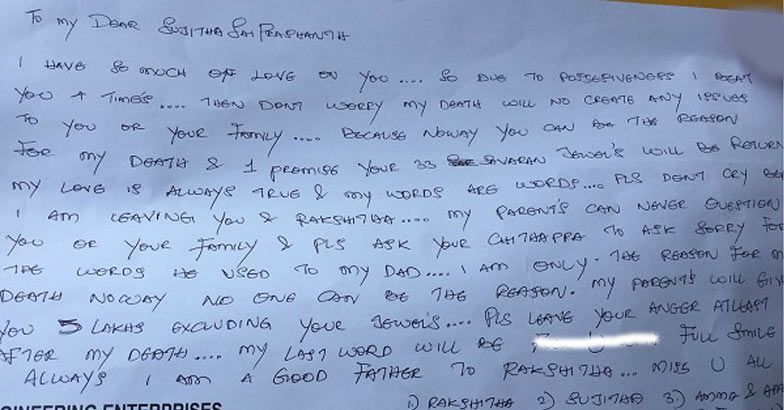 To my DEAR SUJITHA SAI PRASHANTH
I HAVE SO MUCH OF LOVE ON YOU.... SO DUE TO POSSESIVENESS I BEAT
YOU 4 TIME'S.... THEN DONT WORRY MY DEATH WILL NO CREATE ANY ISSUES
TO YOU OR YOUR FAMILY.... BECAUSE NOWAY YOU CAN BE THE REASON
FOR MY DEATH & I PROMISE YOUR 33 SAVARAN JEWEL'S WILL BE RETURN
MY LOVE IS ALWAYS TRUE & MY WORDS ARE WORDS.... PLS DONT CRY
I AM LEAVING YOU & RAKSHITHA.... MY PARENT'S CAN NEVER QUESTION
YOU OR YOUR FAMILY & PLS ASK YOUR CHITHAPPA TO ASK SORRY FOR
THE WORDS HE USED TO MY DAD.... I AM ONLY. THE REASON FOR
DEATH NOWAY NO ONE CAN BE THE REASON. MY PARENT'S WILL GIVE
YOU 5 LAKHS EXCLUDING YOUR JEWEL'S.... PLS LEAVE YOUR ANGER ATLEAST
AFTER MY DEATH.... MY LAST WORD WILL BE FULL SMILE
ALWAYS I AM A GOOD FATHER TO RAKSHITHA... MISS U ALL
1) RAKSHITHA 2) SUJITHA 3) AMMA &
ENTERPRISES